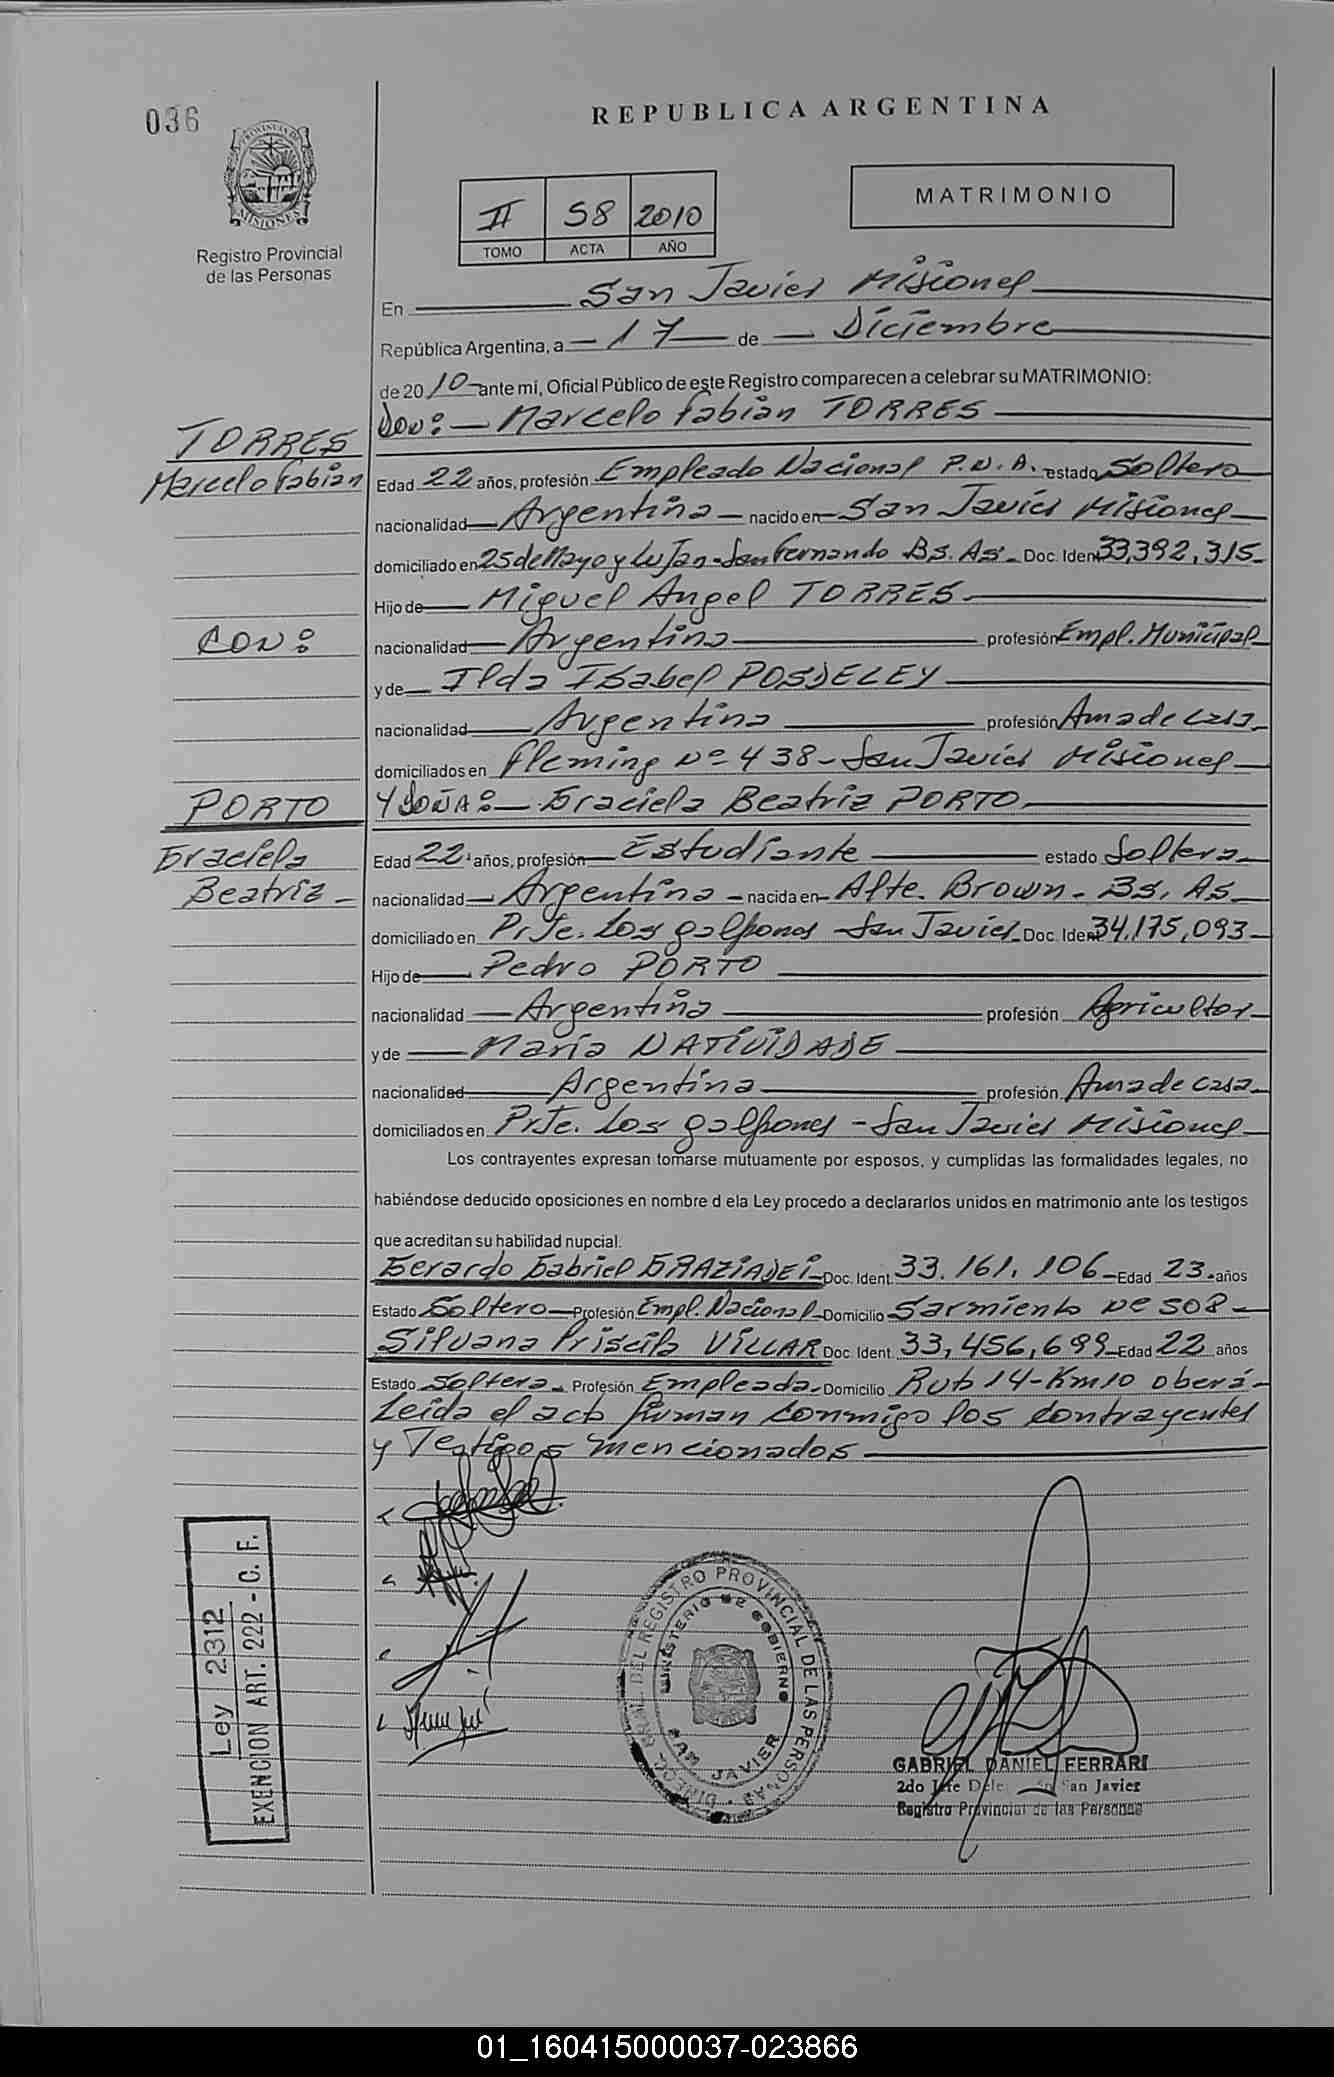 036
REPUBLICA ARGENTINA
PROVINCIA DE
MISIONES
Registro Provincial
de las Personas
II 58 2010
TOMO ACTA AÑO
MATRIMONIO
En San Javier Misiones
República Argentina, a 17 de Diciembre
de 2010 ante mi, Oficial Público de este Registro comparecen a celebrar su MATRIMONIO:
DON: Marcelo Fabián TORRES
TORRES
Marcelo Fabián
Edad 22 años, profesión Empleado Nacional P.N.A. estado Soltero
nacionalidad Argentina nacido en San Javier Misiones
domiciliado en 25 de Mayo y Lujan - San Fernando Bs. As. Doc. Ident. 33,392,315
Hijo de Miguel Angel TORRES
CON:
nacionalidad Argentina profesión Empl. Municipal
y de Ilda Isabel POSDELEY
nacionalidad Argentina profesión Ama de casa
domiciliados en Fleming Nº 438 - San Javier Misiones
PORTO
Y DOÑA: Graciela Beatriz PORTO
Graciela
Beatriz
Edad 22 años, profesión Estudiante estado Soltera
nacionalidad Argentina nacida en Alte. Brown - Bs. As.
domiciliado en PrJe. Los galpones San Javier Doc. Ident. 34.175,093
Hijo de Pedro PORTO
nacionalidad Argentina profesión Agricultor
y de María NATIVIDADE
nacionalidad Argentina profesión Ama de casa
domiciliados en PrJe. Los galpones - San Javier Misiones
Los contrayentes expresan tomarse mutuamente por esposos, y cumplidas las formalidades legales, no
habiéndose deducido oposiciones en nombre d ela Ley procedo a declararlos unidos en matrimonio ante los testigos
que acreditan su habilidad nupcial.
Gerardo Gabriel GRAZIADEI Doc. Ident. 33.161.106 Edad 23 años
Estado Soltero Profesión Empl. Nacional Domicilio Sarmiento Nº 508
Silvana Priscila VILLAR Doc. Ident. 33,456,699 Edad 22 años
Estado Soltera Profesión Empleada Domicilio Ruta 14 - Km 10 oberá
Leída el acta firman conmigo los contrayentes
y Testigos mencionados
Ley 2312
EXENCION ART. 222 - C. F.
DIREC. GRAL. DEL REGISTRO PROVINCIAL DE LAS PERSONAS
MINISTERIO DE GOBIERNO
SAN JAVIER
GABRIEL DANIEL FERRARI
2do Jefe San Javier
Registro Provincial de las Personas
01_160415000037-023866